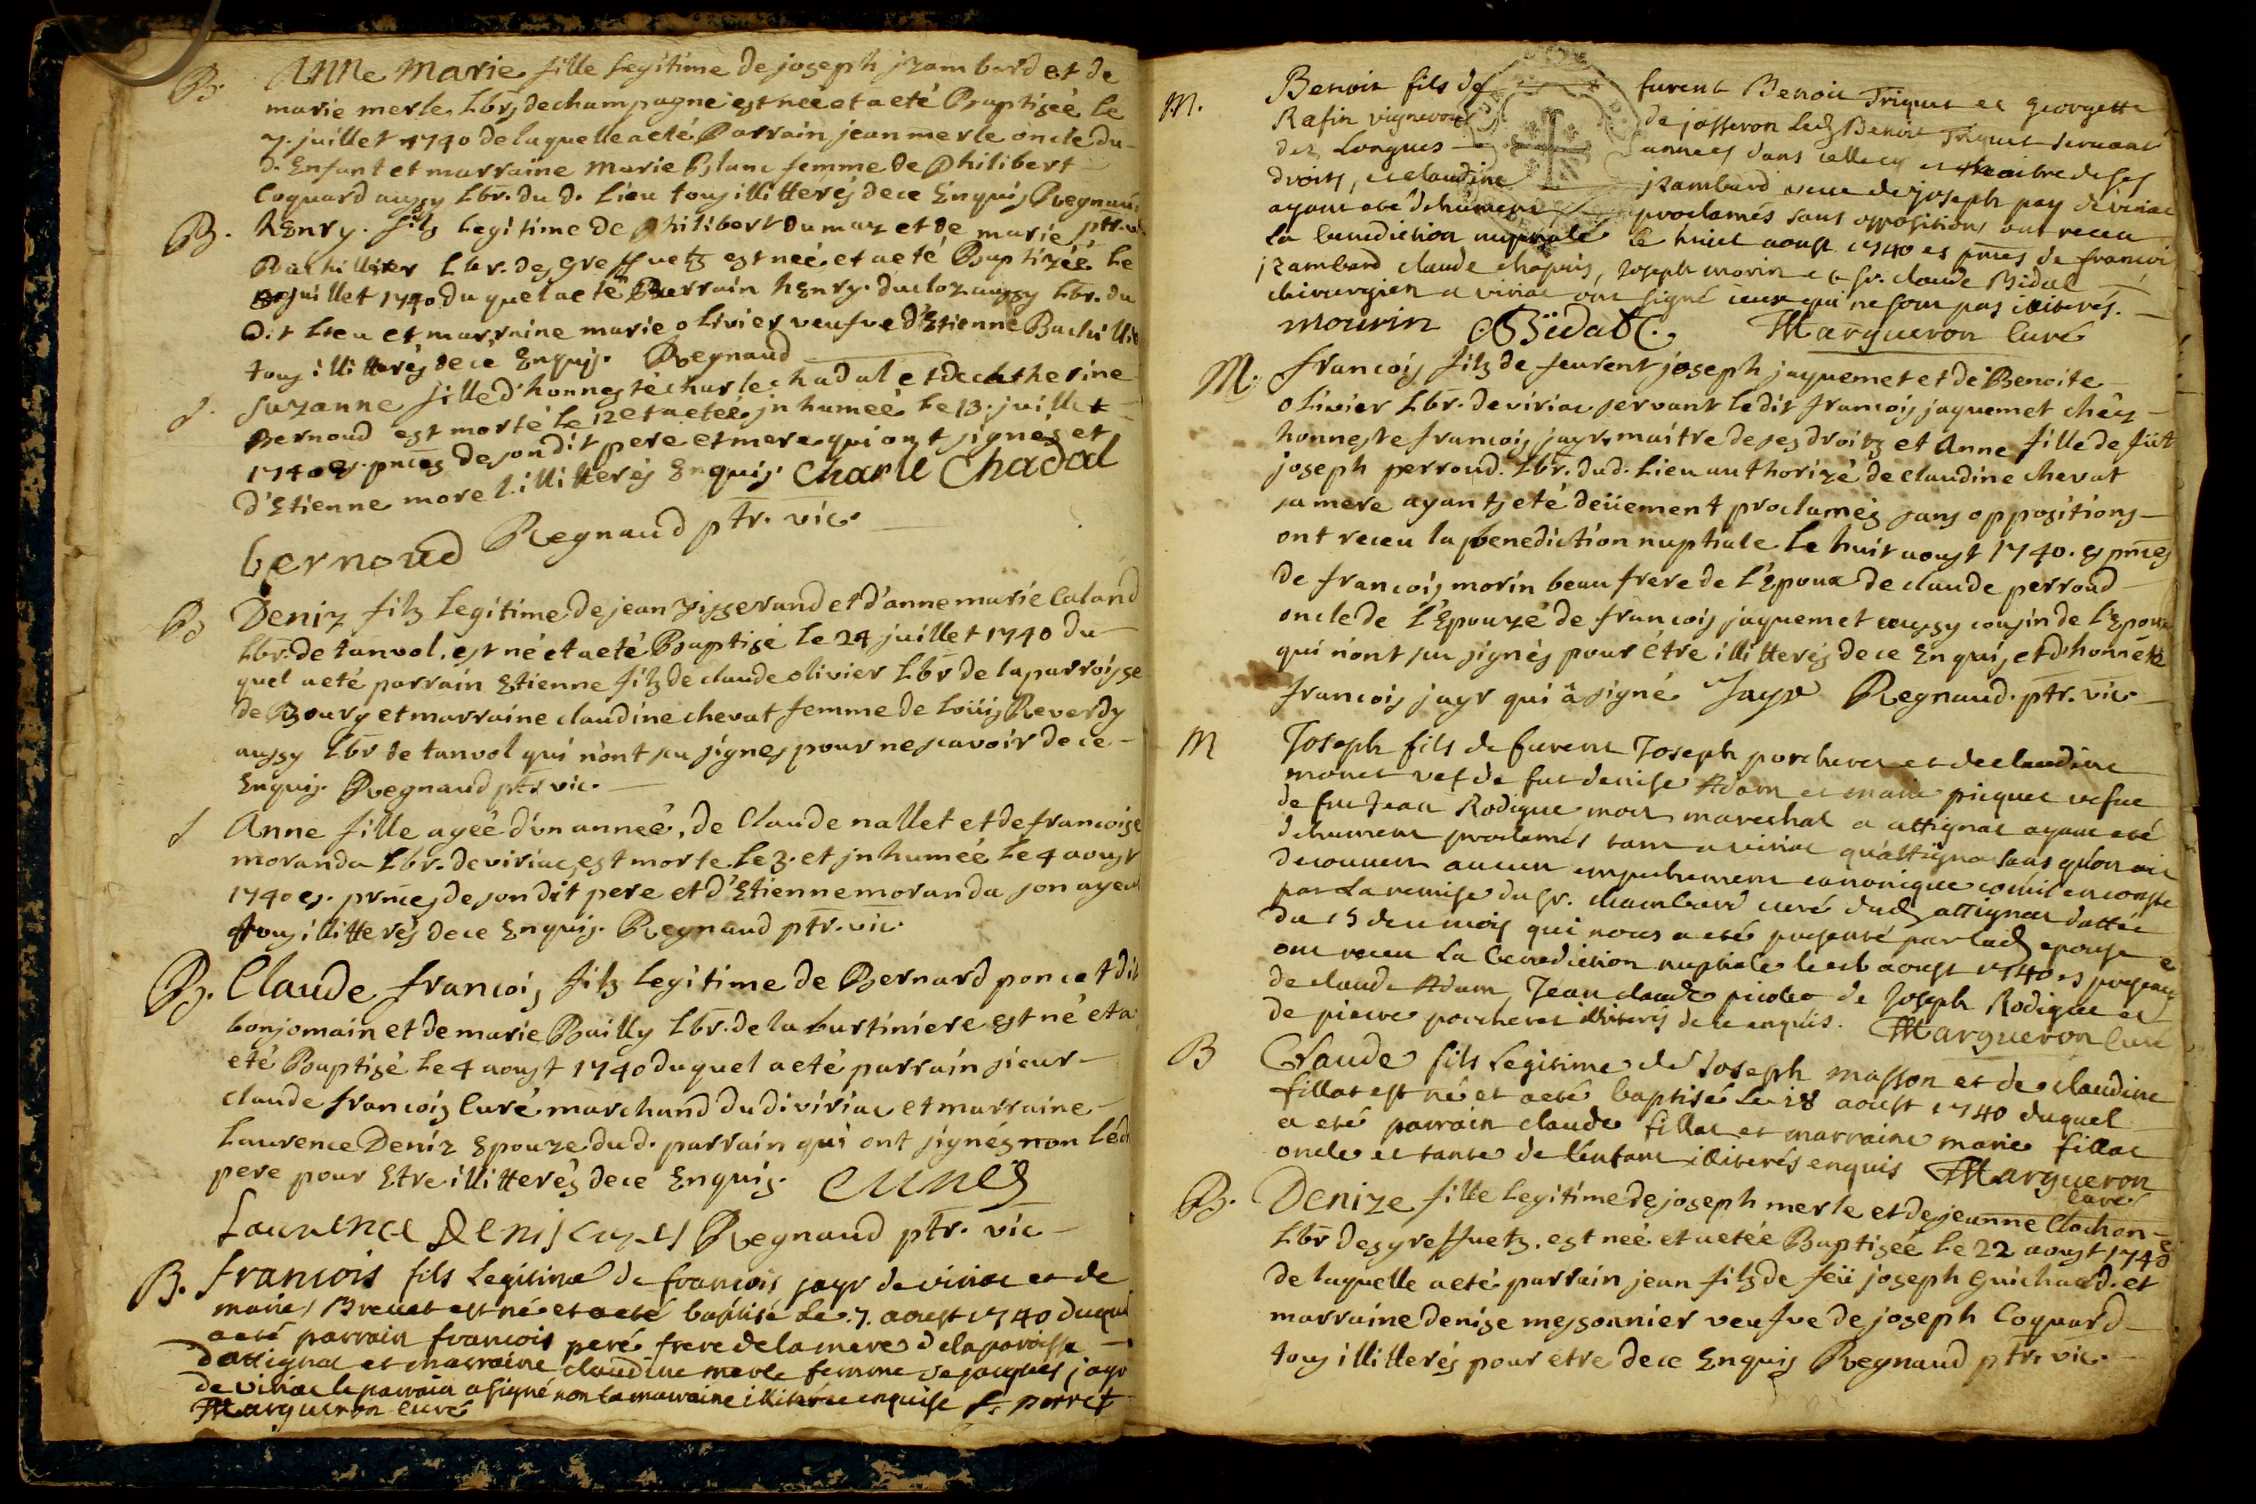 B. Anne Marie fille legitime de joseph jzambard et de
marie merle Lbr. de champagne est neé et a eté Baptiseé Le
7. juillet 1740 de laquelle a eté Parrain jean merle oncle du
d. Enfant et marraine Marie Blanc femme de Philibert
Coquard aussy Lbr. du d. Lieu tous illitterés de ce Enquis Regnaud
ptr. vic
B. Henry. filz Legitime de Philibert dumaz et de marie
Bachillier Lbr. des Greffuetz est neé et a eté Baptizeé Le
juillet 1740 du quel a eté Parrain henry. ducloz aussy Lbr. du
dit Lieu et marraine marie olivier veufve d'Etienne Bachillier
tous illitterés de ce Enquis. Regnaud
S. Suzanne fille d'honnesté charle chadal et de catherine
Bernoud est morte Le 12 et a eteé jnhumeé Le 13. juillet
1740 es. pnces de son dit pere et mere qui ont signes et
d'Etienne morel illitterés Enquis. Charle Chadal
bernoud Regnaud ptr. vic.
B. Deniz filz Legitime de jean vizzerand et d'anne marie Caland
Lbr. de tanvol. est né et a eté Baptisé Le 24 juillet 1740 du
quel a eté parrain Etienne filz de claude olivier Lbr de la parroisse
de Bourg et marraine claudine chevat femme de Loüis Reverdy
aussy Lbr de tanvol qui n'ont su signes pour ne scavoir de ce
Enquis. Regnaud ptr. vic.
S Anne fille ageé d'un anneé, de Claude nallet et de francoise
moranda Lbr. de viriac, est morte Le 3. et jnhumeé Le 4 aoust
1740 es. pnces de son dit pere et d'Etienne moranda son ayeul
tous illitterés de ce Enquis. Regnaud ptr. vic.
B. Claude francois filz Legitime de Bernard poncet dit
bonjomain et de marie Bailly Lbr. de la burtiniere est né et a
eté Baptisé Le 4 aoust 1740 duquel a eté parrain sieur
claude francois Curé marchand du di viriac et marraine
Laurence Deniz Epouze du d. parrain qui ont signés non Led
pere pour Etre illitterés de ce Enquis.
Laurence Denis Regnaud ptr. vic
B. francois fils Legitime de francois jayr de viriac et de
marie Brevet est né et a eté baptisé Le 7. aoust 1740 duquel
a eté parrain francois peré frere de la mere de la paroisse
d'attignac et marraine claudine merle femme de jacques jayr
de viriac le parrain a signé non la marraine illiterée enquise f. perret
Margueron curé
M. Benoit fils de furent Benoit Triquet et georgette
Rafin vigneron de josseron led Benoit Triquet servant
des Longues années dans cellecy et maitre de ses
droits, et claudine jzambard veuve de joseph pay de viriac
ayant eté duhement proclamés sans oppositions ont receu
la benediction nuptiale le huict aoust 1740 es pnces de francois
jzambard claude chapuis, joseph morin et Sr. claude Bidal
chirurgien a viriac ont signé ceux qui ne sont pas illiterés.
mourin Bidal C. Margueron curé
M: francois filz de feurent joseph jaquemet et de Benoite
olivier Lbr. de viriac servant le dit francois jaquemet chéz
honneste francois jayr, maitre de ses droitz et Anne fille de füt
joseph perroud. Lbr. du d. Lieu authorizé de claudine chevat
sa mere ayantz eté deüement proclaméz sans oppositions
ont receu la benediction nuptiale Le huit aoust 1740. es pnces
de francois morin beau frere de L'Epoux de claude perroud
oncle de L'Epouzé de francois jaquemet aussy cousin de L'Epoux
qui n'ont su signés pour étre illitterés de ce Enquis, et d'honneté
francois jayr qui â signé Jayr Regnaud. ptr. vic
M Joseph fils de furent Joseph porcheret et de claudine
monet vef de fut denise Adam et marie picquet vefue
de fut Jean Rodigue mort marechal a attignat ayant eté
duhement proclamés tant a viriac qu'attigna sans qu'on ait
decouvert aucun empechement canonique comil en conste
par la remise du Sr. chambard curé dud attignat dattée
du 15 du mois qui nous a eté presenté par lad epouse
ont receu La benediction nuptiale le 16 aoust 1740 es presences
de claude Adam, Jean claude picolet de Joseph Rodigue et
de pierre porcheret illiterés de ce enquis. Margueron curé
B Claude fils Legitime de Joseph masson et de claudine
fillat est né et a eté baptisé le 18 aoust 1740 duquel
a eté parrain claude fillat et marraine marie fillat
oncle et tante de l'enfant illiterés enquis Margueron
curé
B. Denize fille Legitime de joseph merle et de jeanne Clochon
Lbr des greffuetz. est neé et a eteé Baptiseé Le 22 aoust 1740
de laquelle a eté parrain jean filz de feü joseph Guichard. et
marraine denise messonnier veufve de joseph Coquard
tous illitterés pour etre de ce Enquis Regnaud ptr. vic.